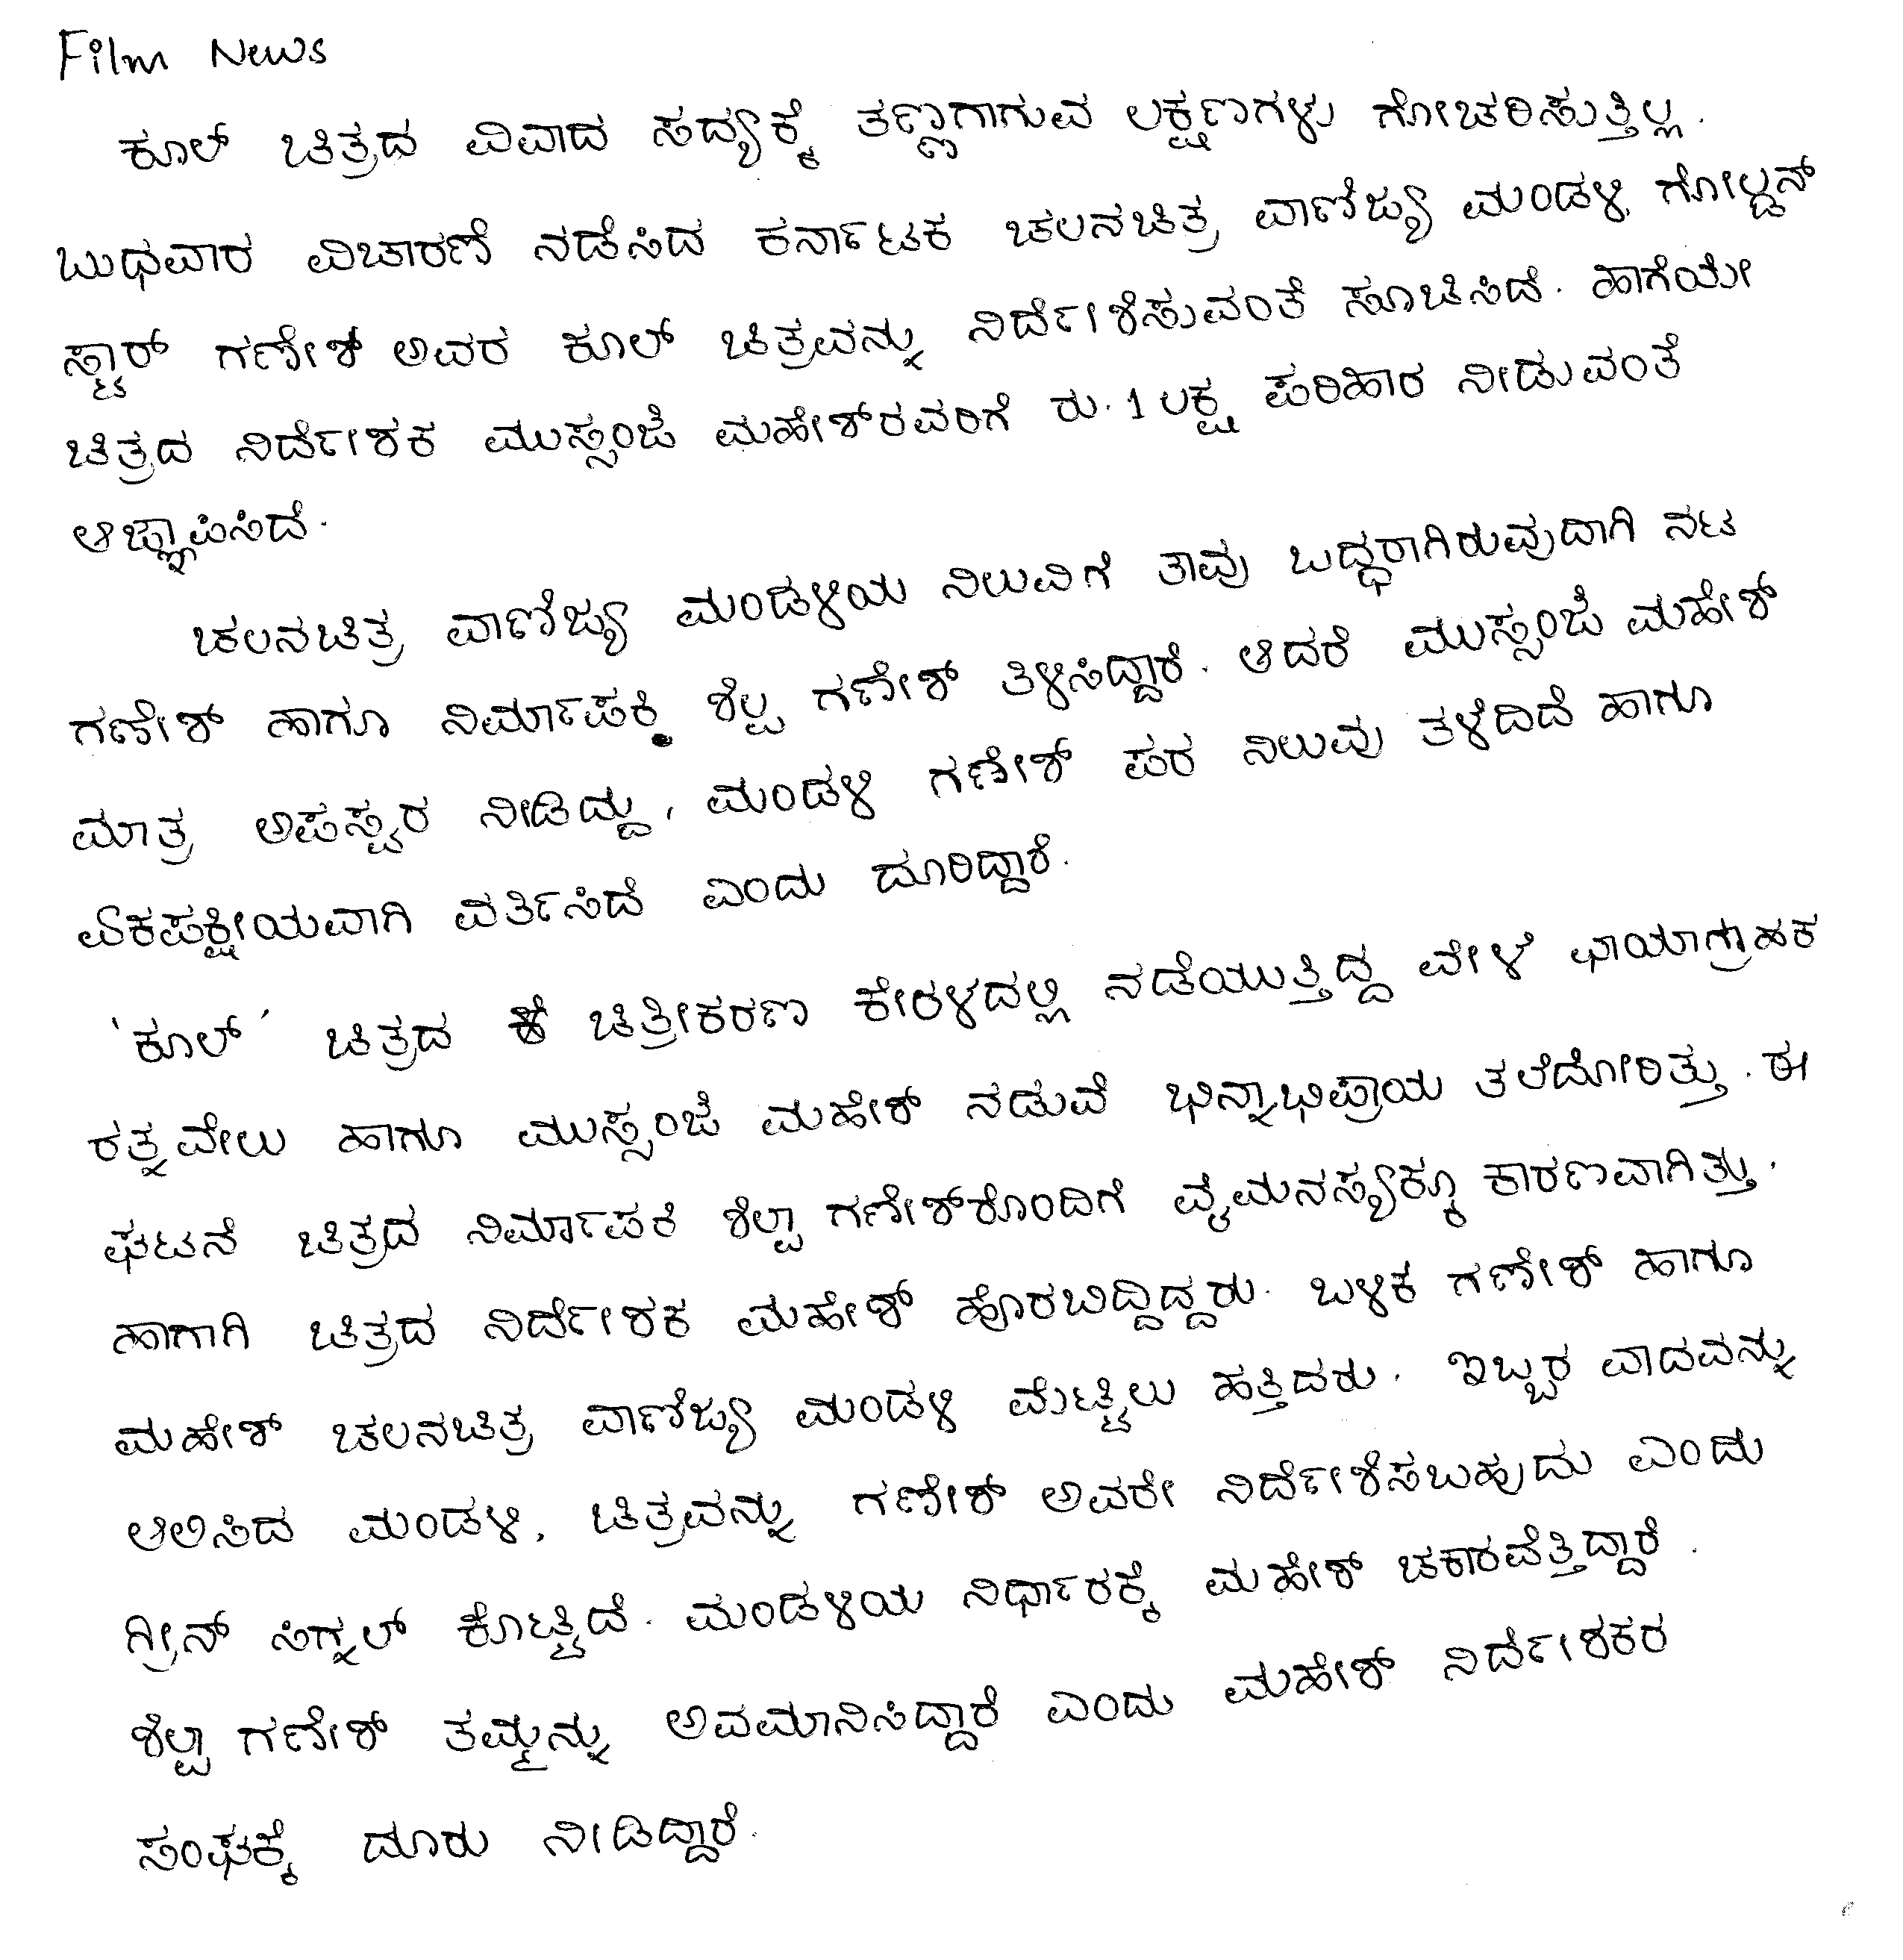 Film News
ಕೂಲ್ ಚಿತ್ರದ ವಿವಾದ ಸದ್ಯಕ್ಕೆ ತಣ್ಣಗಾಗುವ ಲಕ್ಷಣಗಳು ಗೋಚರಿಸುತ್ತಿಲ್ಲ.
ಬುಧವಾರ ವಿಚಾರಣೆ ನಡೆಸಿದ ಕರ್ನಾಟಕ ಚಲನಚಿತ್ರ ವಾಣಿಜ್ಯ ಮಂಡಳಿ, ಗೋಲ್ಡನ್
ಸ್ಟಾರ್ ಗಣೇಶ್ ಅವರ ಕೂಲ್ ಚಿತ್ರವನ್ನು ನಿರ್ದೇಶಿಸುವಂತೆ ಸೂಚಿಸಿದೆ. ಹಾಗೆಯೇ
ಚಿತ್ರದ ನಿರ್ದೇಶಕ ಮುಸ್ಸಂಜೆ ಮಹೇಶ್‌ರವರಿಗೆ ರು. 1 ಲಕ್ಷ ಪರಿಹಾರ ನೀಡುವಂತೆ
ಆಜ್ಞಾಪಿಸಿದೆ.
ಚಲನಚಿತ್ರ ವಾಣಿಜ್ಯ ಮಂಡಳಿಯ ನಿಲುವಿಗೆ ತಾವು ಬದ್ಧರಾಗಿರುವುದಾಗಿ ನಟ
ಗಣೇಶ್ ಹಾಗೂ ನಿರ್ಮಾಪಕಿ ಶಿಲ್ಪ ಗಣೇಶ್ ತಿಳಿಸಿದ್ದಾರೆ. ಆದರೆ ಮುಸ್ಸಂಜೆ ಮಹೇಶ್
ಮಾತ್ರ ಅಪಸ್ವರ ನೀಡಿದ್ದು, ಮಂಡಳಿ ಗಣೇಶ್ ಪರ ನಿಲುವು ತಳೆದಿದೆ ಹಾಗೂ
ಏಕಪಕ್ಷೀಯವಾಗಿ ವರ್ತಿಸಿದೆ ಎಂದು ದೂರಿದ್ದಾರೆ.
'ಕೂಲ್' ಚಿತ್ರದ ಚಿತ್ರೀಕರಣ ಕೇರಳದಲ್ಲಿ ನಡೆಯುತ್ತಿದ್ದ ವೇಳೆ ಛಾಯಾಗ್ರಾಹಕ
ರತ್ನವೇಲು ಹಾಗೂ ಮುಸ್ಸಂಜೆ ಮಹೇಶ್ ನಡುವೆ ಭಿನ್ನಾಭಿಪ್ರಾಯ ತಲೆದೋರಿತ್ತು. ಈ
ಘಟನೆ ಚಿತ್ರದ ನಿರ್ಮಾಪಕಿ ಶಿಲ್ಪಾ ಗಣೇಶ್‌ರೊಂದಿಗೆ ವೈಮನಸ್ಯಕ್ಕೂ ಕಾರಣವಾಗಿತ್ತು.
ಹಾಗಾಗಿ ಚಿತ್ರದ ನಿರ್ದೇಶಕ ಮಹೇಶ್ ಹೊರಬಿದ್ದಿದ್ದರು. ಬಳಿಕ ಗಣೇಶ್ ಹಾಗೂ
ಮಹೇಶ್ ಚಲನಚಿತ್ರ ವಾಣಿಜ್ಯ ಮಂಡಳಿ ಮೆಟ್ಟಿಲು ಹತ್ತಿದರು. ಇಬ್ಬರ ವಾದವನ್ನು
ಆಲಿಸಿದ ಮಂಡಳಿ, ಚಿತ್ರವನ್ನು ಗಣೇಶ್ ಅವರೇ ನಿರ್ದೇಶಿಸಬಹುದು ಎಂದು
ಗ್ರೀನ್ ಸಿಗ್ನಲ್ ಕೊಟ್ಟಿದೆ. ಮಂಡಳಿಯ ನಿರ್ಧಾರಕ್ಕೆ ಮಹೇಶ್ ಚಕಾರವೆತ್ತಿದ್ದಾರೆ.
ಶಿಲ್ಪಾ ಗಣೇಶ್ ತಮ್ಮನ್ನು ಅವಮಾನಿಸಿದ್ದಾರೆ ಎಂದು ಮಹೇಶ್ ನಿರ್ದೇಶಕರ
ಸಂಘಕ್ಕೆ ದೂರು ನೀಡಿದ್ದಾರೆ.